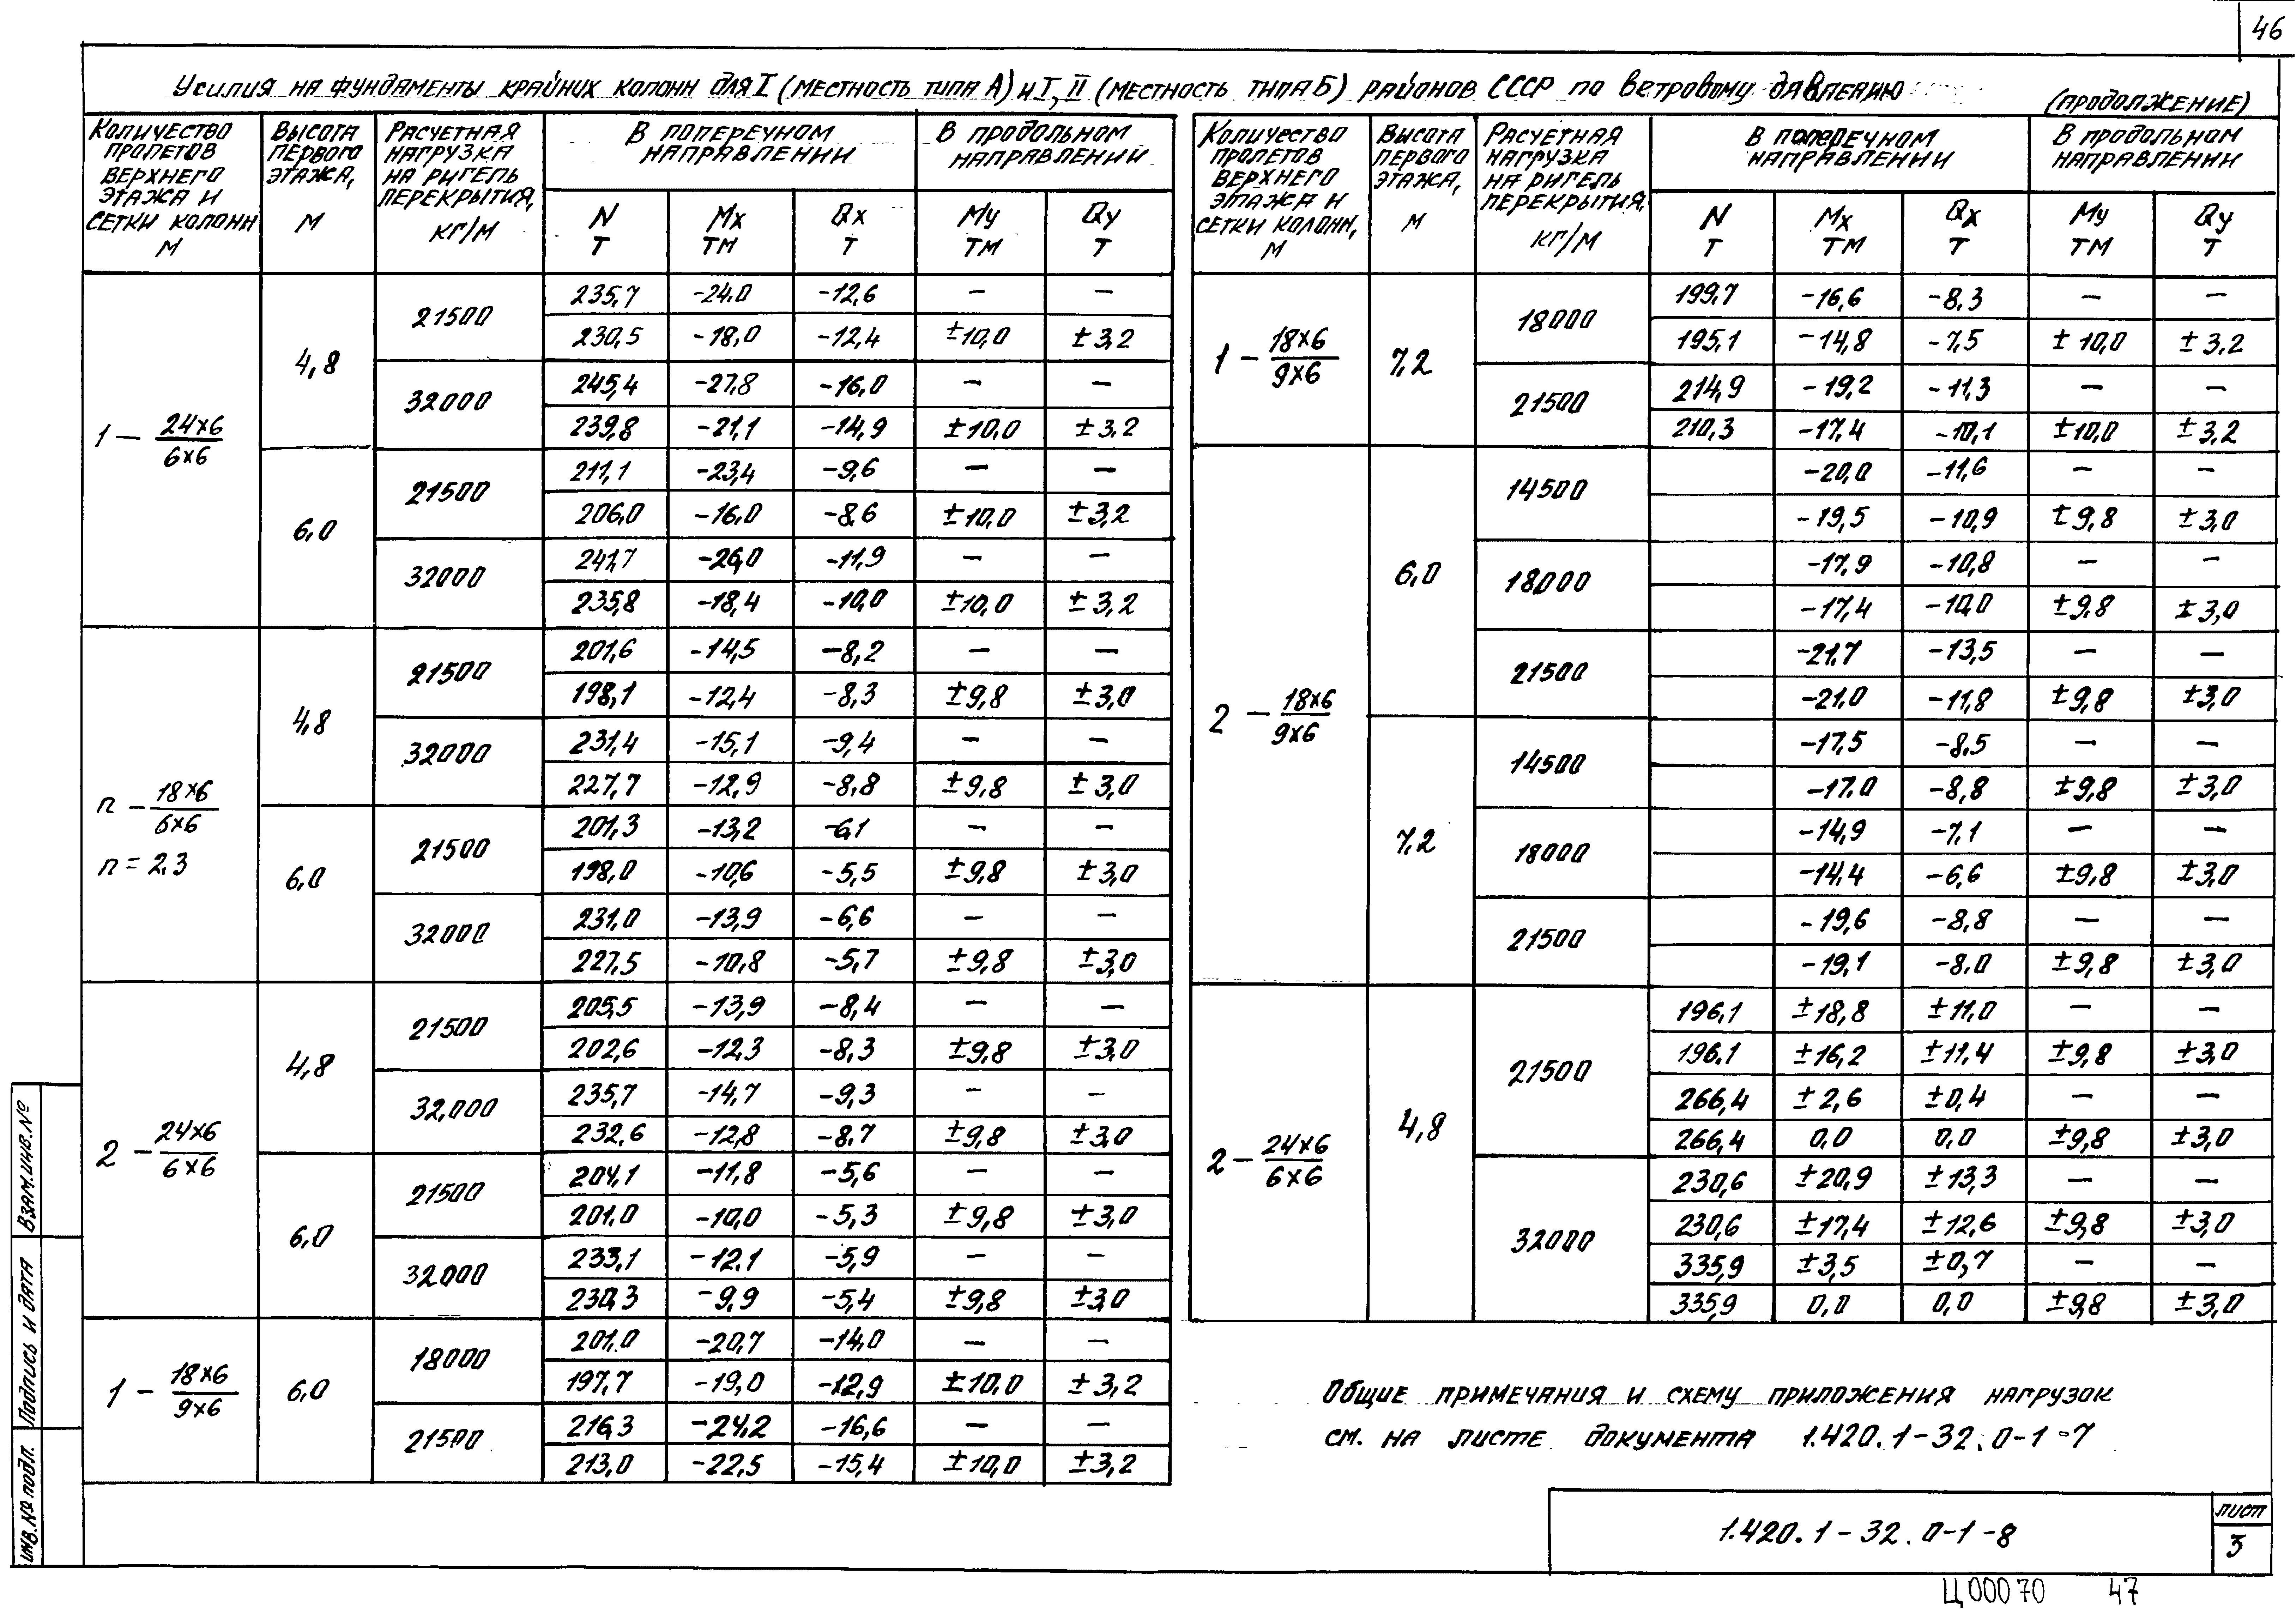 46
Усилия на фундаменты крайних колонн для I (местность типа А) и I, II (местность типа Б) районов СССР по ветровому давлению
(продолжение)
Количество пролетов верхнего этажа и сетки колонн М
Высота первого этажа, М
Расчетная нагрузка на ригель перекрытия, кг/м
В поперечном направлении
В продольном направлении
N Т
Mx ТМ
Qx Т
My ТМ
Qy Т
1 – 24×6 / 6×6
4,8
21500
235,7 -24.0 -12,6 — —
230,5 -18,0 -12,4 ±10,0 ±3,2
32000
245,4 -27,8 -16,0 — —
239,8 -21,1 -14,9 ±10,0 ±3,2
6,0
21500
211,1 -23,4 -9,6 — —
206,0 -16,0 -8,6 ±10,0 ±3,2
32000
241,7 -26,0 -11,9 — —
235,8 -18,4 -10,0 ±10,0 ±3,2
n – 18×6 / 6×6
n = 2,3
4,8
21500
201,6 -14,5 -8,2 — —
198,1 -12,4 -8,3 ±9,8 ±3,0
32000
231,4 -15,1 -9,4 — —
227,7 -12,9 -8,8 ±9,8 ±3,0
6,0
21500
201,3 -13,2 -6,1 — —
198,0 -10,6 -5,5 ±9,8 ±3,0
32000
231,0 -13,9 -6,6 — —
227,5 -10,8 -5,7 ±9,8 ±3,0
2 – 24×6 / 6×6
4,8
21500
205,5 -13,9 -8,4 — —
202,6 -12,3 -8,3 ±9,8 ±3,0
32,000
235,7 -14,7 -9,3 — —
232,6 -12,8 -8,7 ±9,8 ±3,0
6,0
21500
204,1 -11,8 -5,6 — —
201,0 -10,0 -5,3 ±9,8 ±3,0
32000
233,1 -12,1 -5,9 — —
230,3 -9,9 -5,4 ±9,8 ±3,0
1 – 18×6 / 9×6
6,0
18000
201,0 -20,7 -14,0 — —
197,7 -19,0 -12,9 ±10,0 ±3,2
21500
216,3 -24,2 -16,6 — —
213,0 -22,5 -15,4 ±10,0 ±3,2
Количество пролетов верхнего этажа и сетки колонн, М
Высота первого этажа, М
Расчетная нагрузка на ригель перекрытия, кг/м
В поперечном направлении
В продольном направлении
N Т
Mx ТМ
Qx Т
My ТМ
Qy Т
1 – 18×6 / 9×6
7,2
18000
199,7 -16,6 -8,3 — —
195,1 -14,8 -7,5 ±10,0 ±3,2
21500
214,9 -19,2 -11,3 — —
210,3 -17,4 -10,1 ±10,0 ±3,2
2 – 18×6 / 9×6
6,0
14500
-20,0 -11,6 — —
-19,5 -10,9 ±9,8 ±3,0
18000
-17,9 -10,8 — —
-17,4 -10,0 ±9,8 ±3,0
21500
-21,7 -13,5 — —
-21,0 -11,8 ±9,8 ±3,0
7,2
14500
-17,5 -8,5 — —
-17,0 -8,8 ±9,8 ±3,0
18000
-14,9 -7,1 — —
-14,4 -6,6 ±9,8 ±3,0
21500
-19,6 -8,8 — —
-19,1 -8,0 ±9,8 ±3,0
2 – 24×6 / 6×6
4,8
21500
196,1 ±18,8 ±11,0 — —
196,1 ±16,2 ±11,4 ±9,8 ±3,0
266,4 ±2,6 ±0,4 — —
266,4 0,0 0,0 ±9,8 ±3,0
32000
230,6 ±20,9 ±13,3 — —
230,6 ±17,4 ±12,6 ±9,8 ±3,0
335,9 ±3,5 ±0,7 — —
335,9 0,0 0,0 ±9,8 ±3,0
Общие примечания и схему приложения нагрузок
см. на листе документа 1.420.1-32.0-1-7
1.420.1-32.0-1-8
лист
3
Ц00070 47
Инв.№ подл.
Подпись и дата
Взам.инв.№